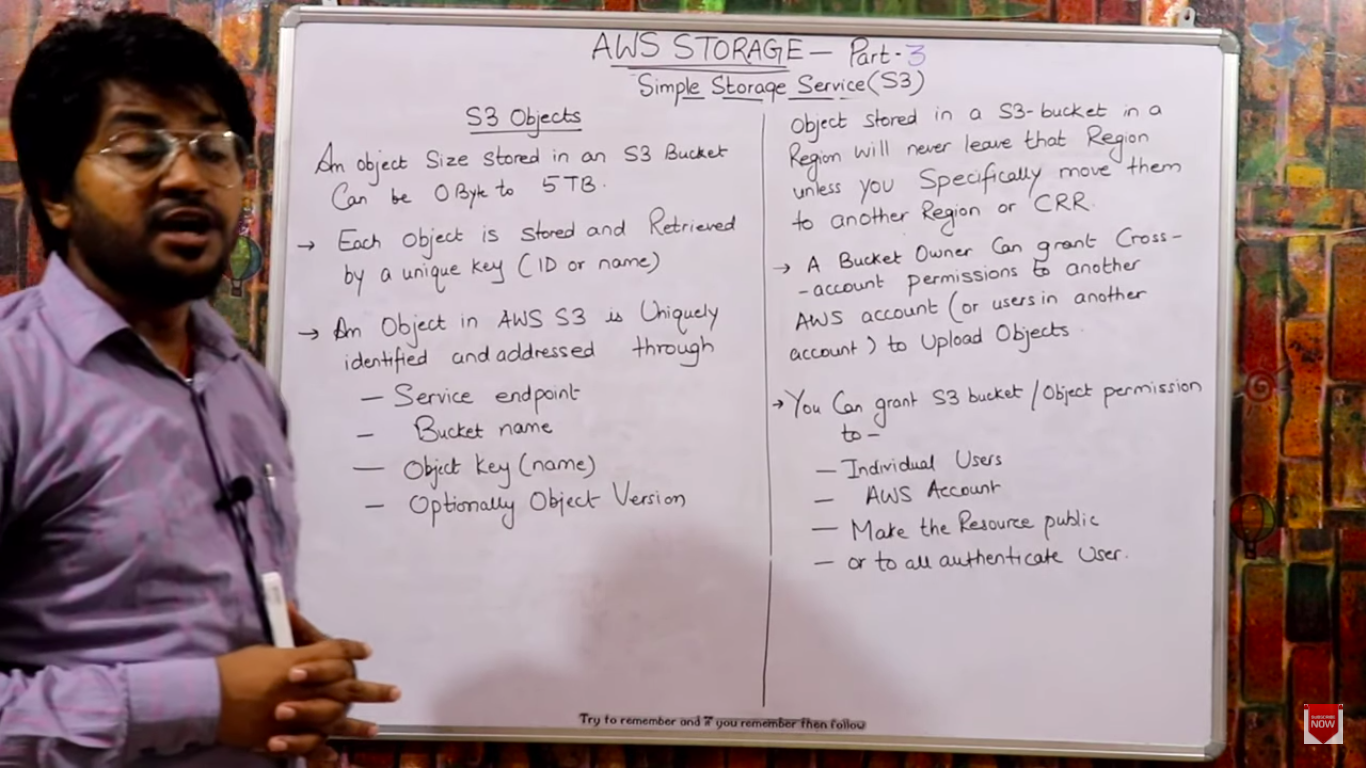 AWS STORAGE – Part-3
Simple Storage Service (S3)
S3 Objects
An object Size stored in an S3 Bucket
Can be 0 Byte to 5TB.
→ Each Object is stored and Retrieved
by a unique key (ID or name)
→ An Object in AWS S3 is Uniquely
identified and addressed through
– Service endpoint
– Bucket name
– Object key (name)
– Optionally Object Version
Object stored in a S3-bucket in a
Region will never leave that Region
unless you Specifically move them
to another Region or CRR.
→ A Bucket Owner Can grant Cross-
-account permissions to another
AWS account (or users in another
account) to Upload Objects.
→ You Can grant S3 bucket / Object permission
to –
– Individual Users
– AWS Account
– Make the Resource public
– or to all authenticate User.
Try to remember and you remember then follow
SUBSCRIBE
NOW